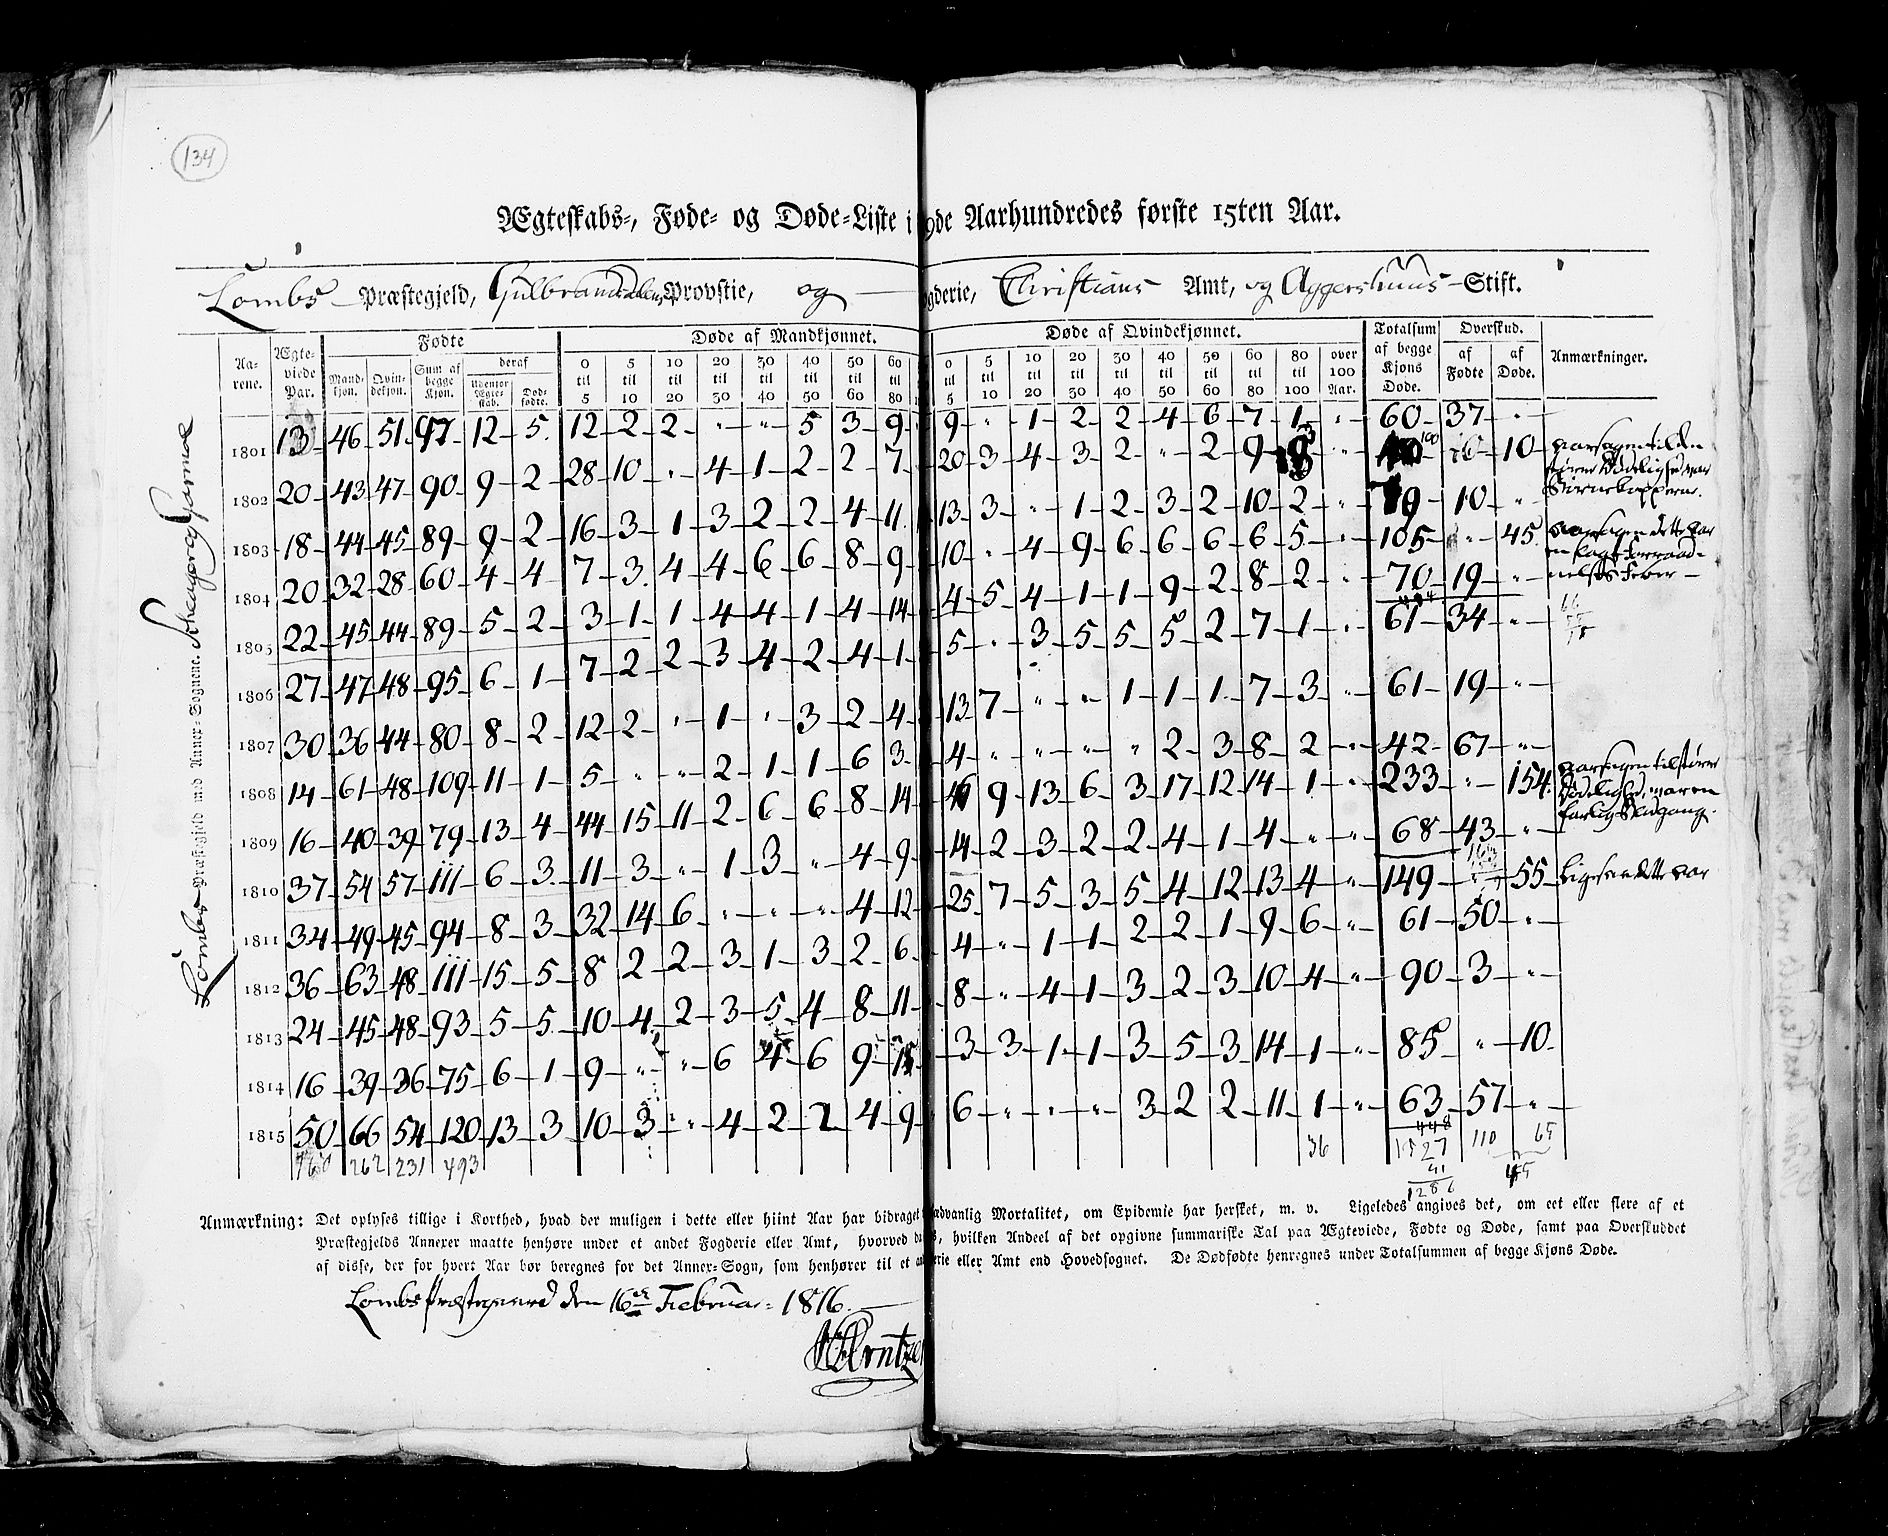 134
Ægteskabs-, Føde- og Døde-Liste i 9de Aarhundredes første 15ten Aar.
Lombs Præstegjeld, Gulbrandsdalens Provstie, og — gderie, Christians Amt, og Aggershuus Stift.
Lombs Præstegjeld med Annex-Sognene.
Aarene. Ægteviede Par. Fødte Døde af Mandkjønnet. Døde af Qvindekjønnet. Totalsum af begge Kjøns Døde. Overskud. Anmærkninger.
Mandkjøn. Qvindekjøn. Sum af begge Kjøn. deraf Udenfor Ægteskab. Dødfødte.
0 til 5 5 til 10 10 til 20 20 til 30 30 til 40 40 til 50 50 til 60 60 til 80
0 til 5 5 til 10 10 til 20 20 til 30 30 til 40 40 til 50 50 til 60 60 til 80 80 til 100 over 100 Aar.
af Fødte af Døde.
1801 13 46 51 97 12 5 12 2 2 " " 5 3 9 9 " 1 2 2 4 6 7 1 " 60 37 "
1802 20 43 47 90 9 2 28 10 " 4 1 2 2 7 20 3 4 3 2 " 2 9 3 " 100 10
1803 18 44 45 89 9 2 16 3 1 3 2 2 4 11 13 3 " 1 2 3 2 10 2 " 79 10 "
1804 20 32 28 60 4 4 7 3 4 4 6 6 8 9 10 " 4 9 6 6 6 6 5 " 105 " 45
1805 22 45 44 89 5 2 3 1 1 4 4 1 4 14 4 5 4 1 1 9 2 8 2 " 70 19 "
1806 27 47 48 95 6 1 7 2 2 3 4 2 4 1 5 " 3 5 5 5 2 7 1 " 61 34 "
1807 30 36 44 80 8 2 12 2 " 1 " 3 2 4 13 7 " " 1 1 1 7 3 " 61 19 "
1808 14 61 48 109 11 1 5 " " 2 1 1 6 3 4 " " " " 2 3 8 2 " 42 67 "
1809 16 40 39 79 13 4 44 15 11 2 6 6 8 14 9 13 6 3 17 12 14 1 " 233 " 154
1810 37 54 57 111 6 3 11 3 " 1 3 " 4 9 14 2 3 2 2 4 1 4 " " 68 43 "
1811 34 49 45 94 8 3 32 14 6 " " " 4 12 25 7 5 3 5 4 12 13 4 " 149 " 55
1812 36 63 48 111 15 5 8 2 2 3 1 3 2 6 4 " 1 1 2 2 1 9 6 " 61 50 "
1813 24 45 48 93 5 5 10 4 2 3 5 4 8 11 8 " 4 1 3 2 3 10 4 " 90 3 "
1814 16 39 36 75 6 1 9 " " 6 4 6 9 3 3 1 1 3 5 3 14 1 " 85 " 10
1815 50 66 54 120 13 3 10 3 " 4 2 2 4 9 6 " " " 3 2 2 11 1 " 63 57 "
262 231 493 36 1527 110 65
1286
Aarsagen til den
større Dødelighed var
Aarsagen dette Aar
Aarsagen til større
Dødelighed, var en
farlig
Ligesaa dette Aar
Anmærkning: Det oplyses tillige i Korthed, hvad der muligen i dette eller hiint Aar har bidraget ædvanlig Mortalitet, om Epidemie har hersket, m. v. Ligeledes angives det, om eet eller flere af et
Præstegjelds Annexer maatte henhøre under et andet Fogderie eller Amt, hvorved , hvilken Andeel af det opgivne summariske Tal paa Ægteviede, Fødte og Døde, samt paa Overskuddet
af disse, der for hvert Aar bør beregnes for det Annex-Sogn, som henhører til et rie eller Amt end Hovedsognet. De Dødfødte henregnes under Totalsummen af begge Kjøns Døde.
Lombs Præstegaard den 16de Februar 1816.
Arntzen